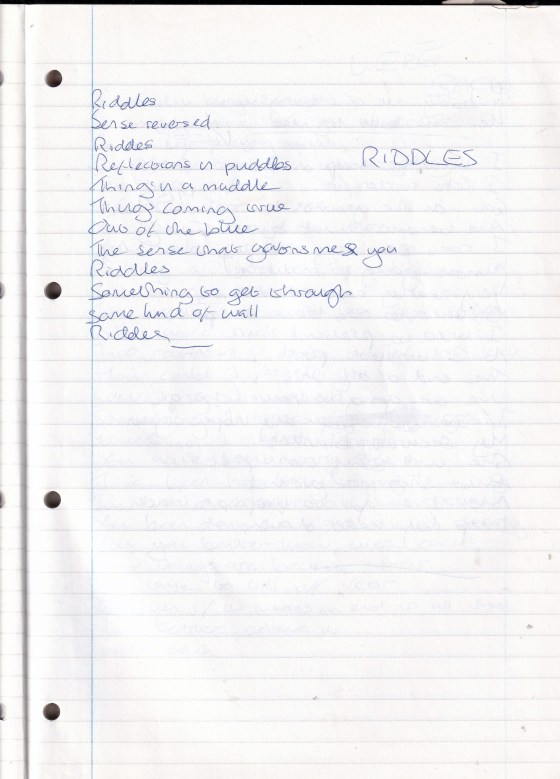 Riddles
Sense reversed
Riddes
Reflections in puddles
RIDDLES
Things in a muddle
Things coming true
Out of the blue
The sense that governs me & you
Riddles
Something to get through
some kind of wall
Riddles